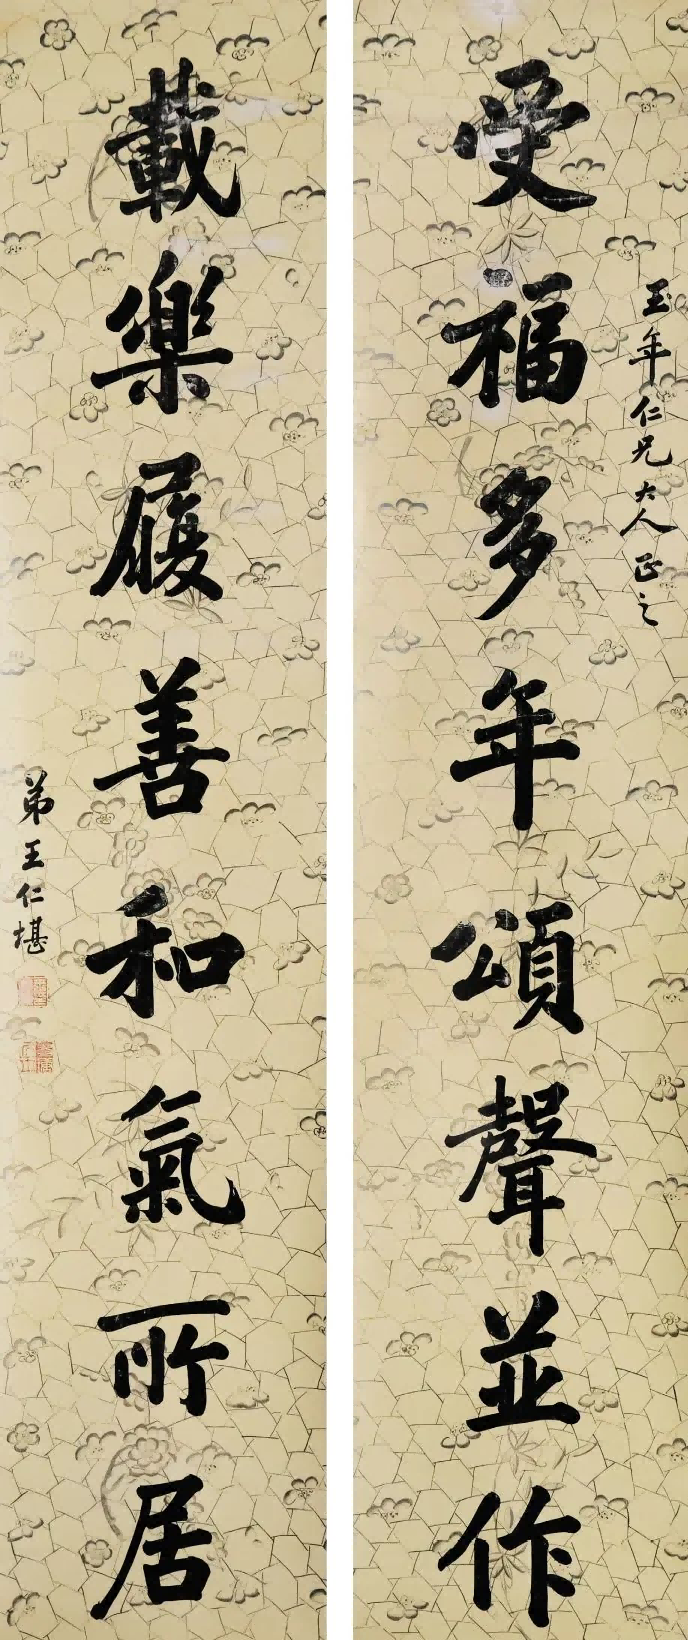 玉年仁兄大人正之
受福多年頌聲並作
載樂履善和氣所居
弟王仁堪